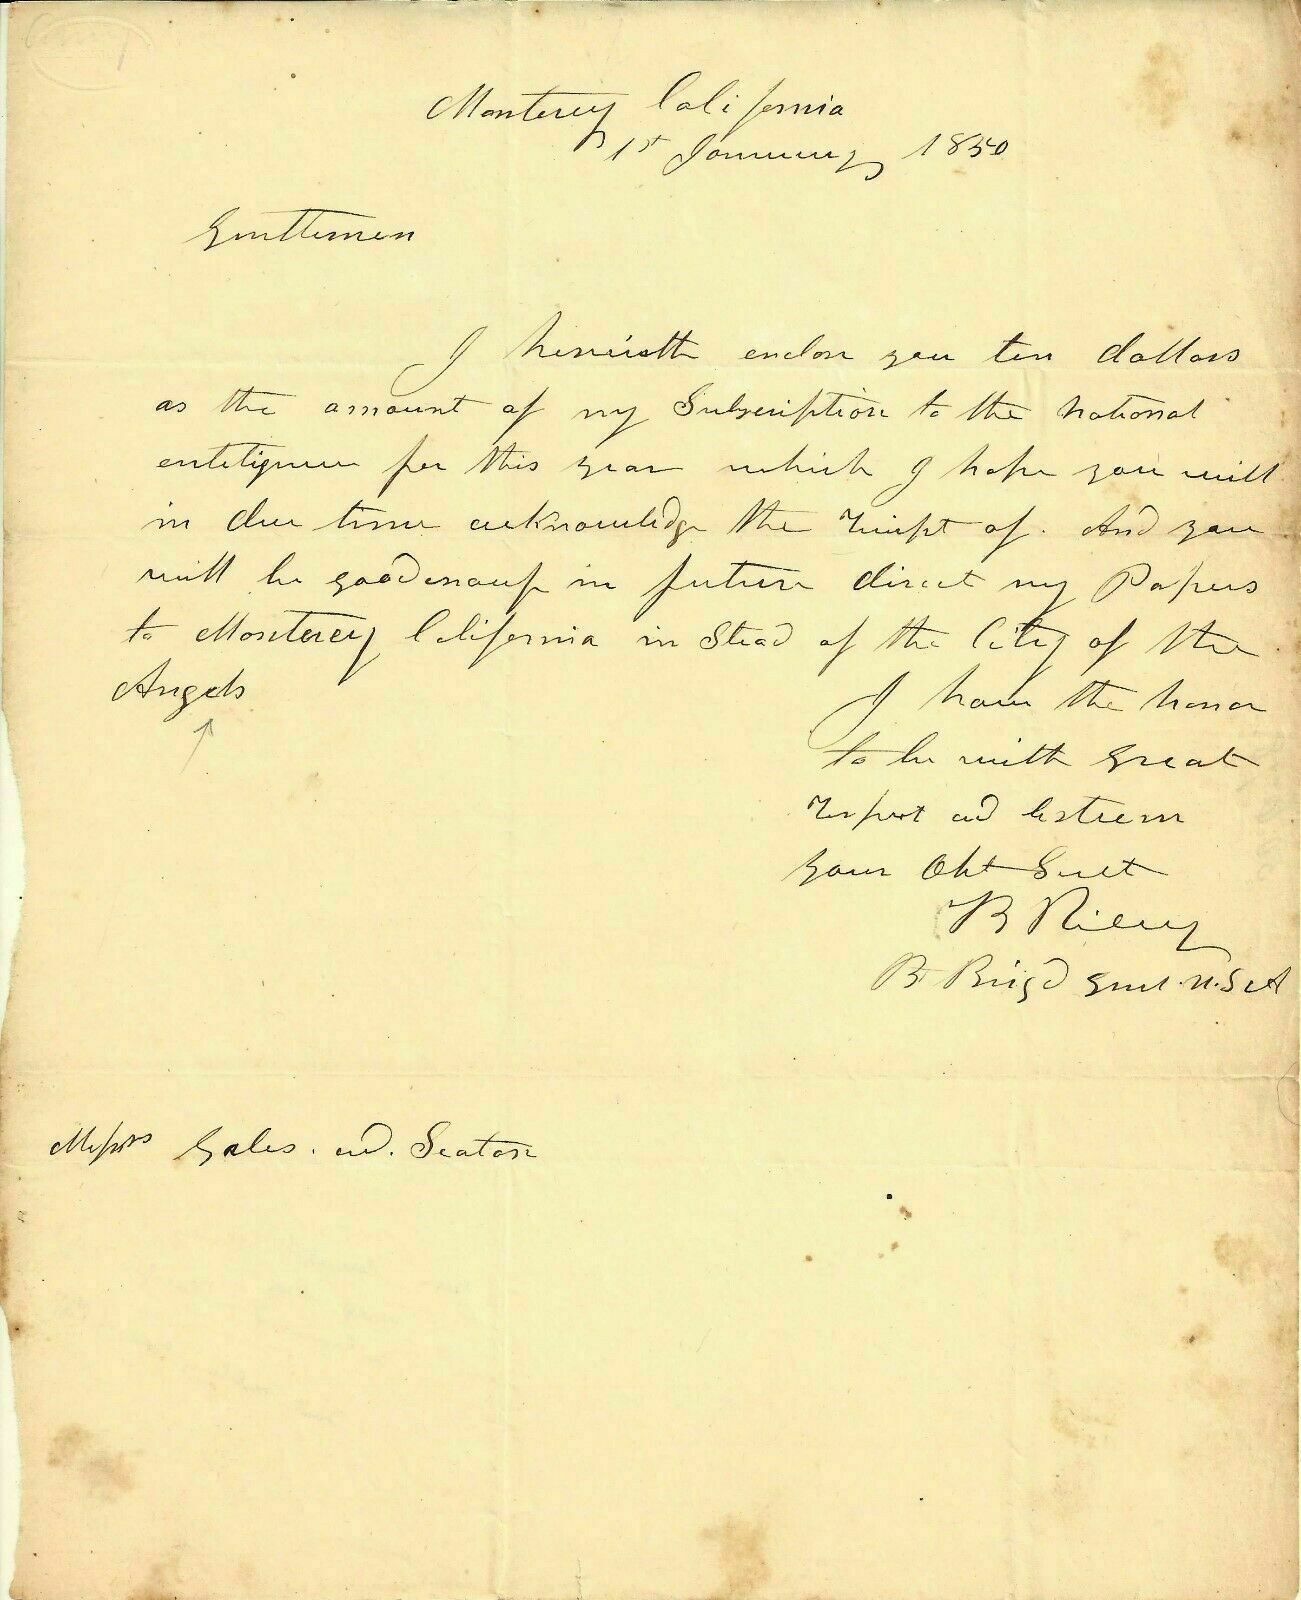 Monterey California
1st January 1850
Gentlemen
I herewith enclose you ten dollars
as the amount of my Subscription to the national
enteligencer for this year which I hope you will
in due time acknowledge the receipt of. And you
will be good enough in future direct my Papers
to Monterey California in Stead of the City of the
Angels
I have the honor
to be with great
respect and Esteem
your Obt Servt
B Riley
Bt Brigd Genl. U.S A
Messrs Gales. and. Seaton